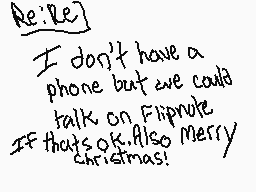 Re:Re]
I don't have a
phone but we could
talk on Flipnote
If thats ok. Also Merry
christmas!